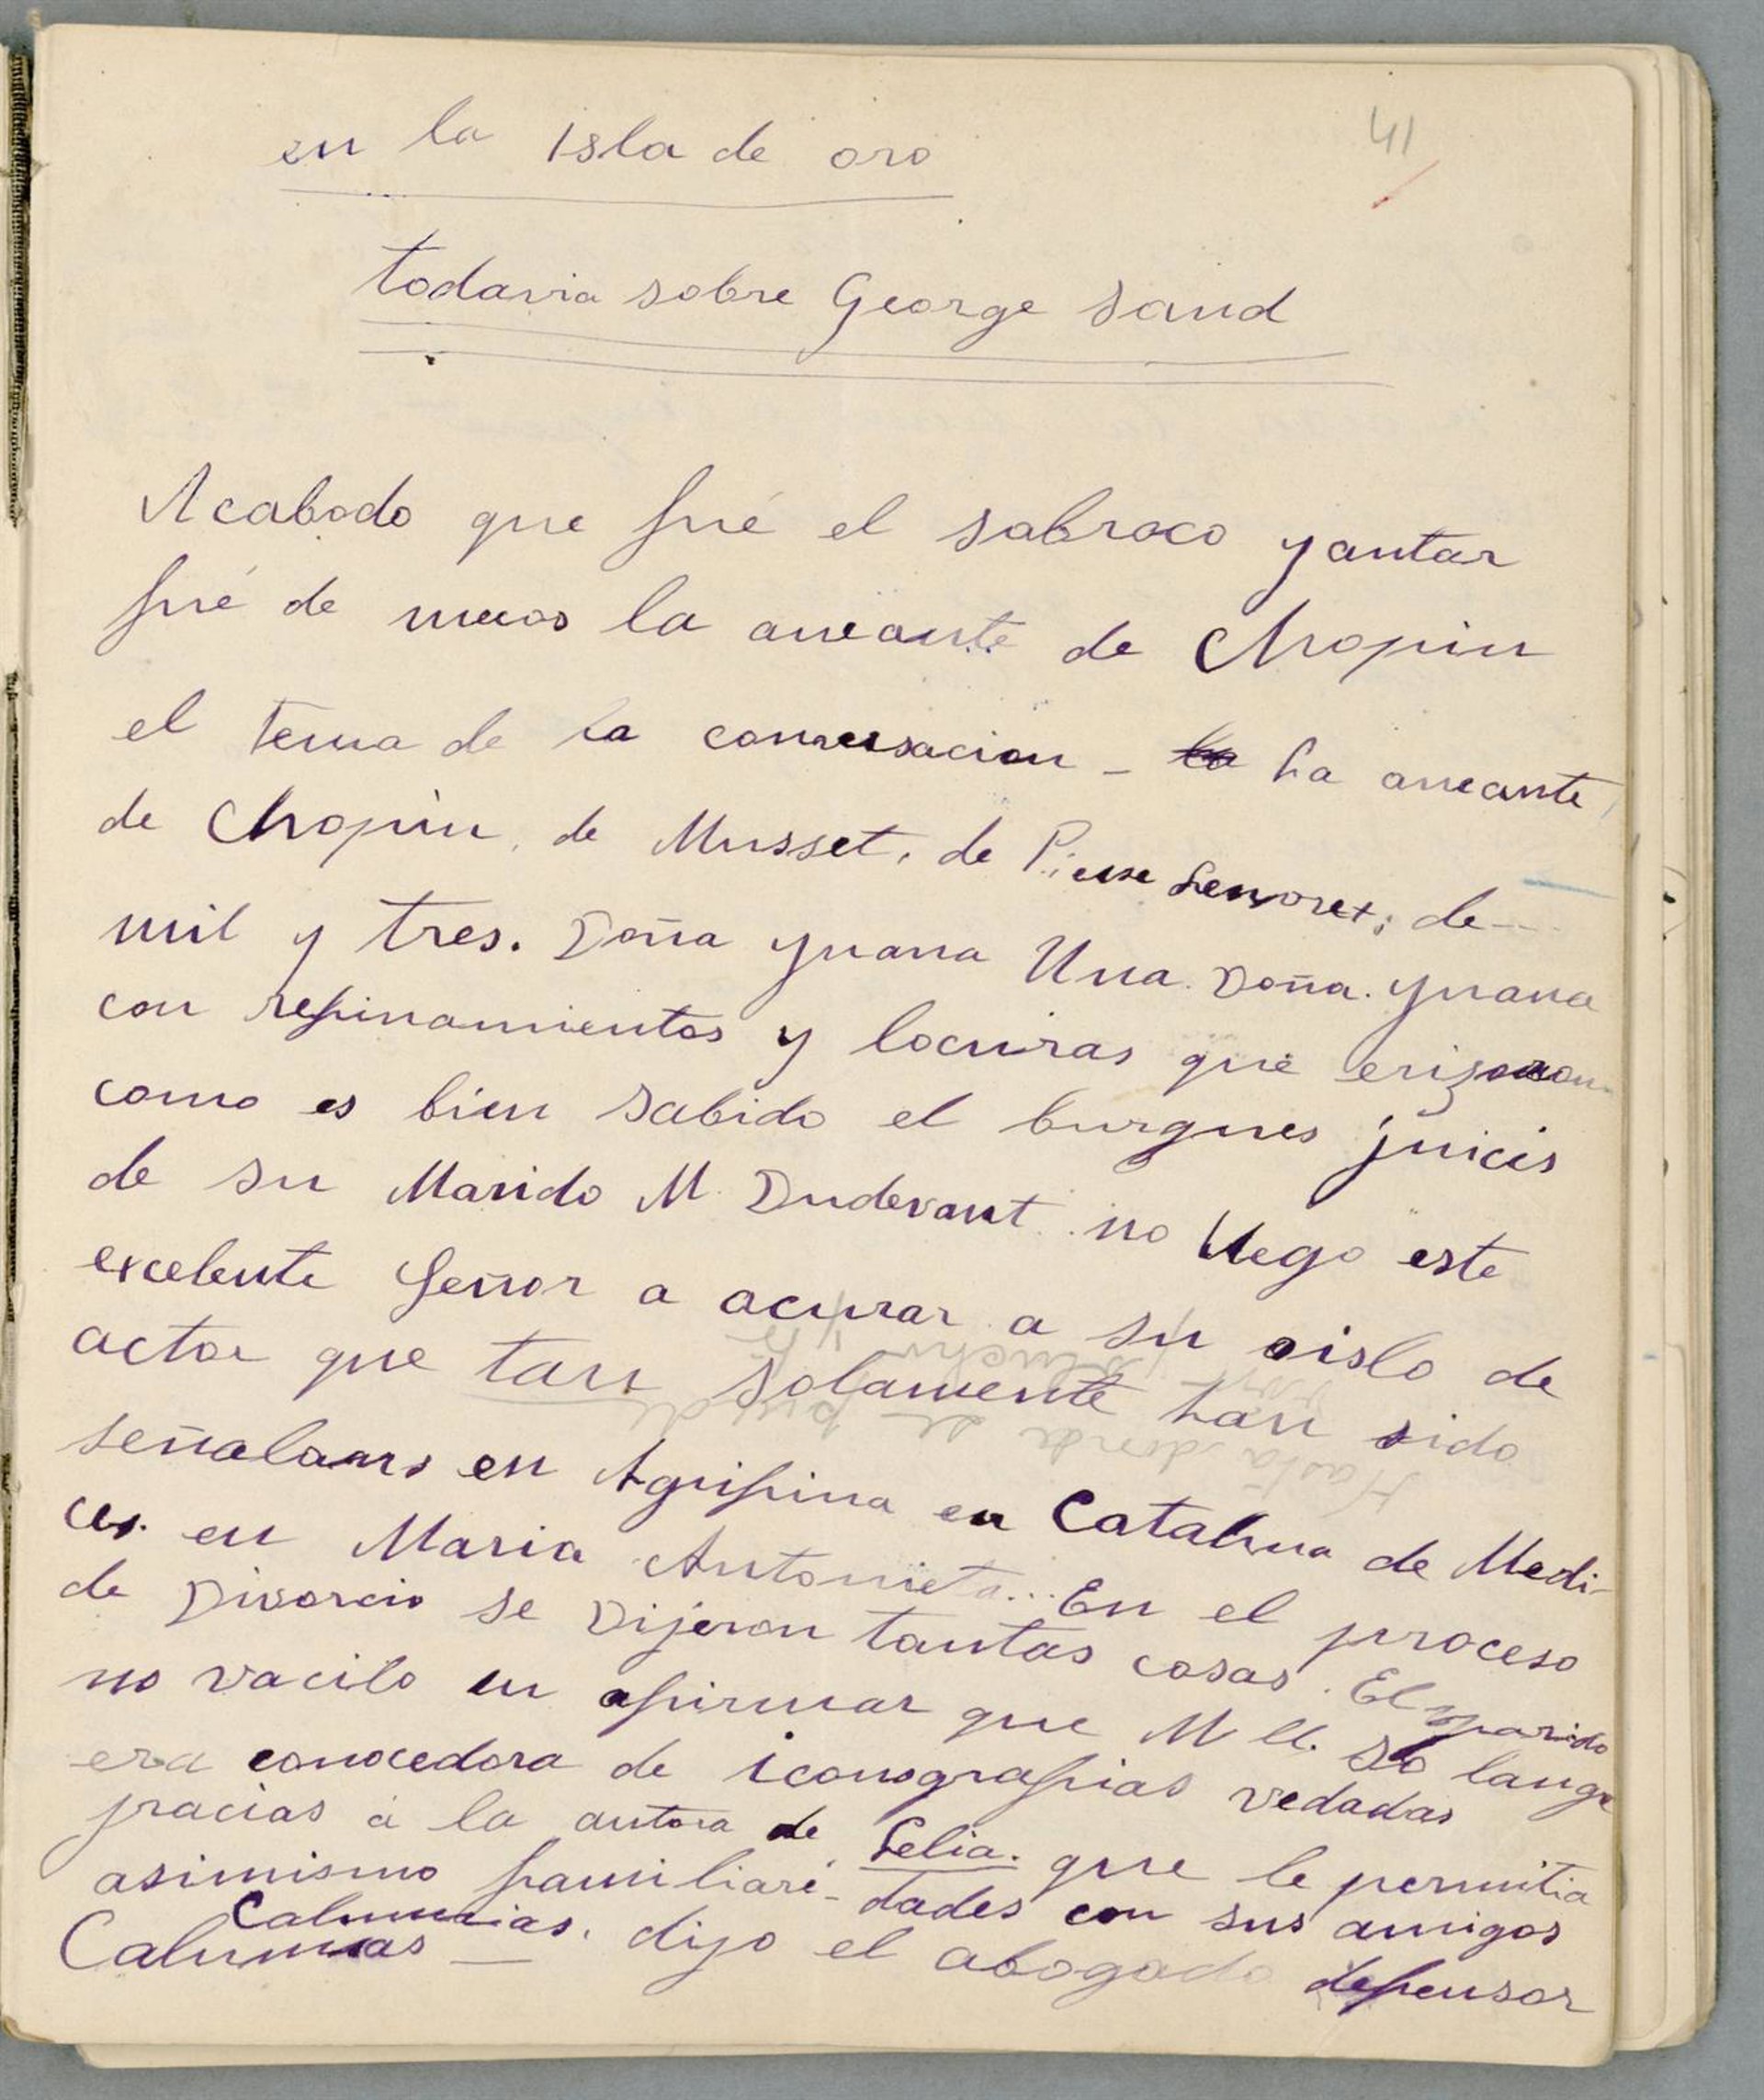 41
en la isla de oro
todavia sobre George Sand
Acabado que fué el sabroco yantar
fué de nuevo la amante de Chopin
el tema de la conversacion - la La amante
de Chopin, de Musset, de Pierre Lenoret; de---
mil y tres. Doña Yuana Una. Doña. Yuana
con refinamientos y locuras que erizaron
como es bien sabido el burgues juicio
de su Marido M. Dudevant. no llego este
excelente Señor a acusar a su oislo de
actos que tan solamente han sido
señalados en Agripina en Catalina de Medi-
cis. en Maria Antonieta... En el proceso
de Divorcio se Dijeron tantas cosas. El marido
no vacilo en afirmar que Mlle. So lange
era conocedora de iconografias vedadas
gracias á la autora de Lelia. que le permitia
asimismo familiari-dades con sus amigos
Calumnias.
Calumnias — dijo el abogado defensor
Hasta donde se puede